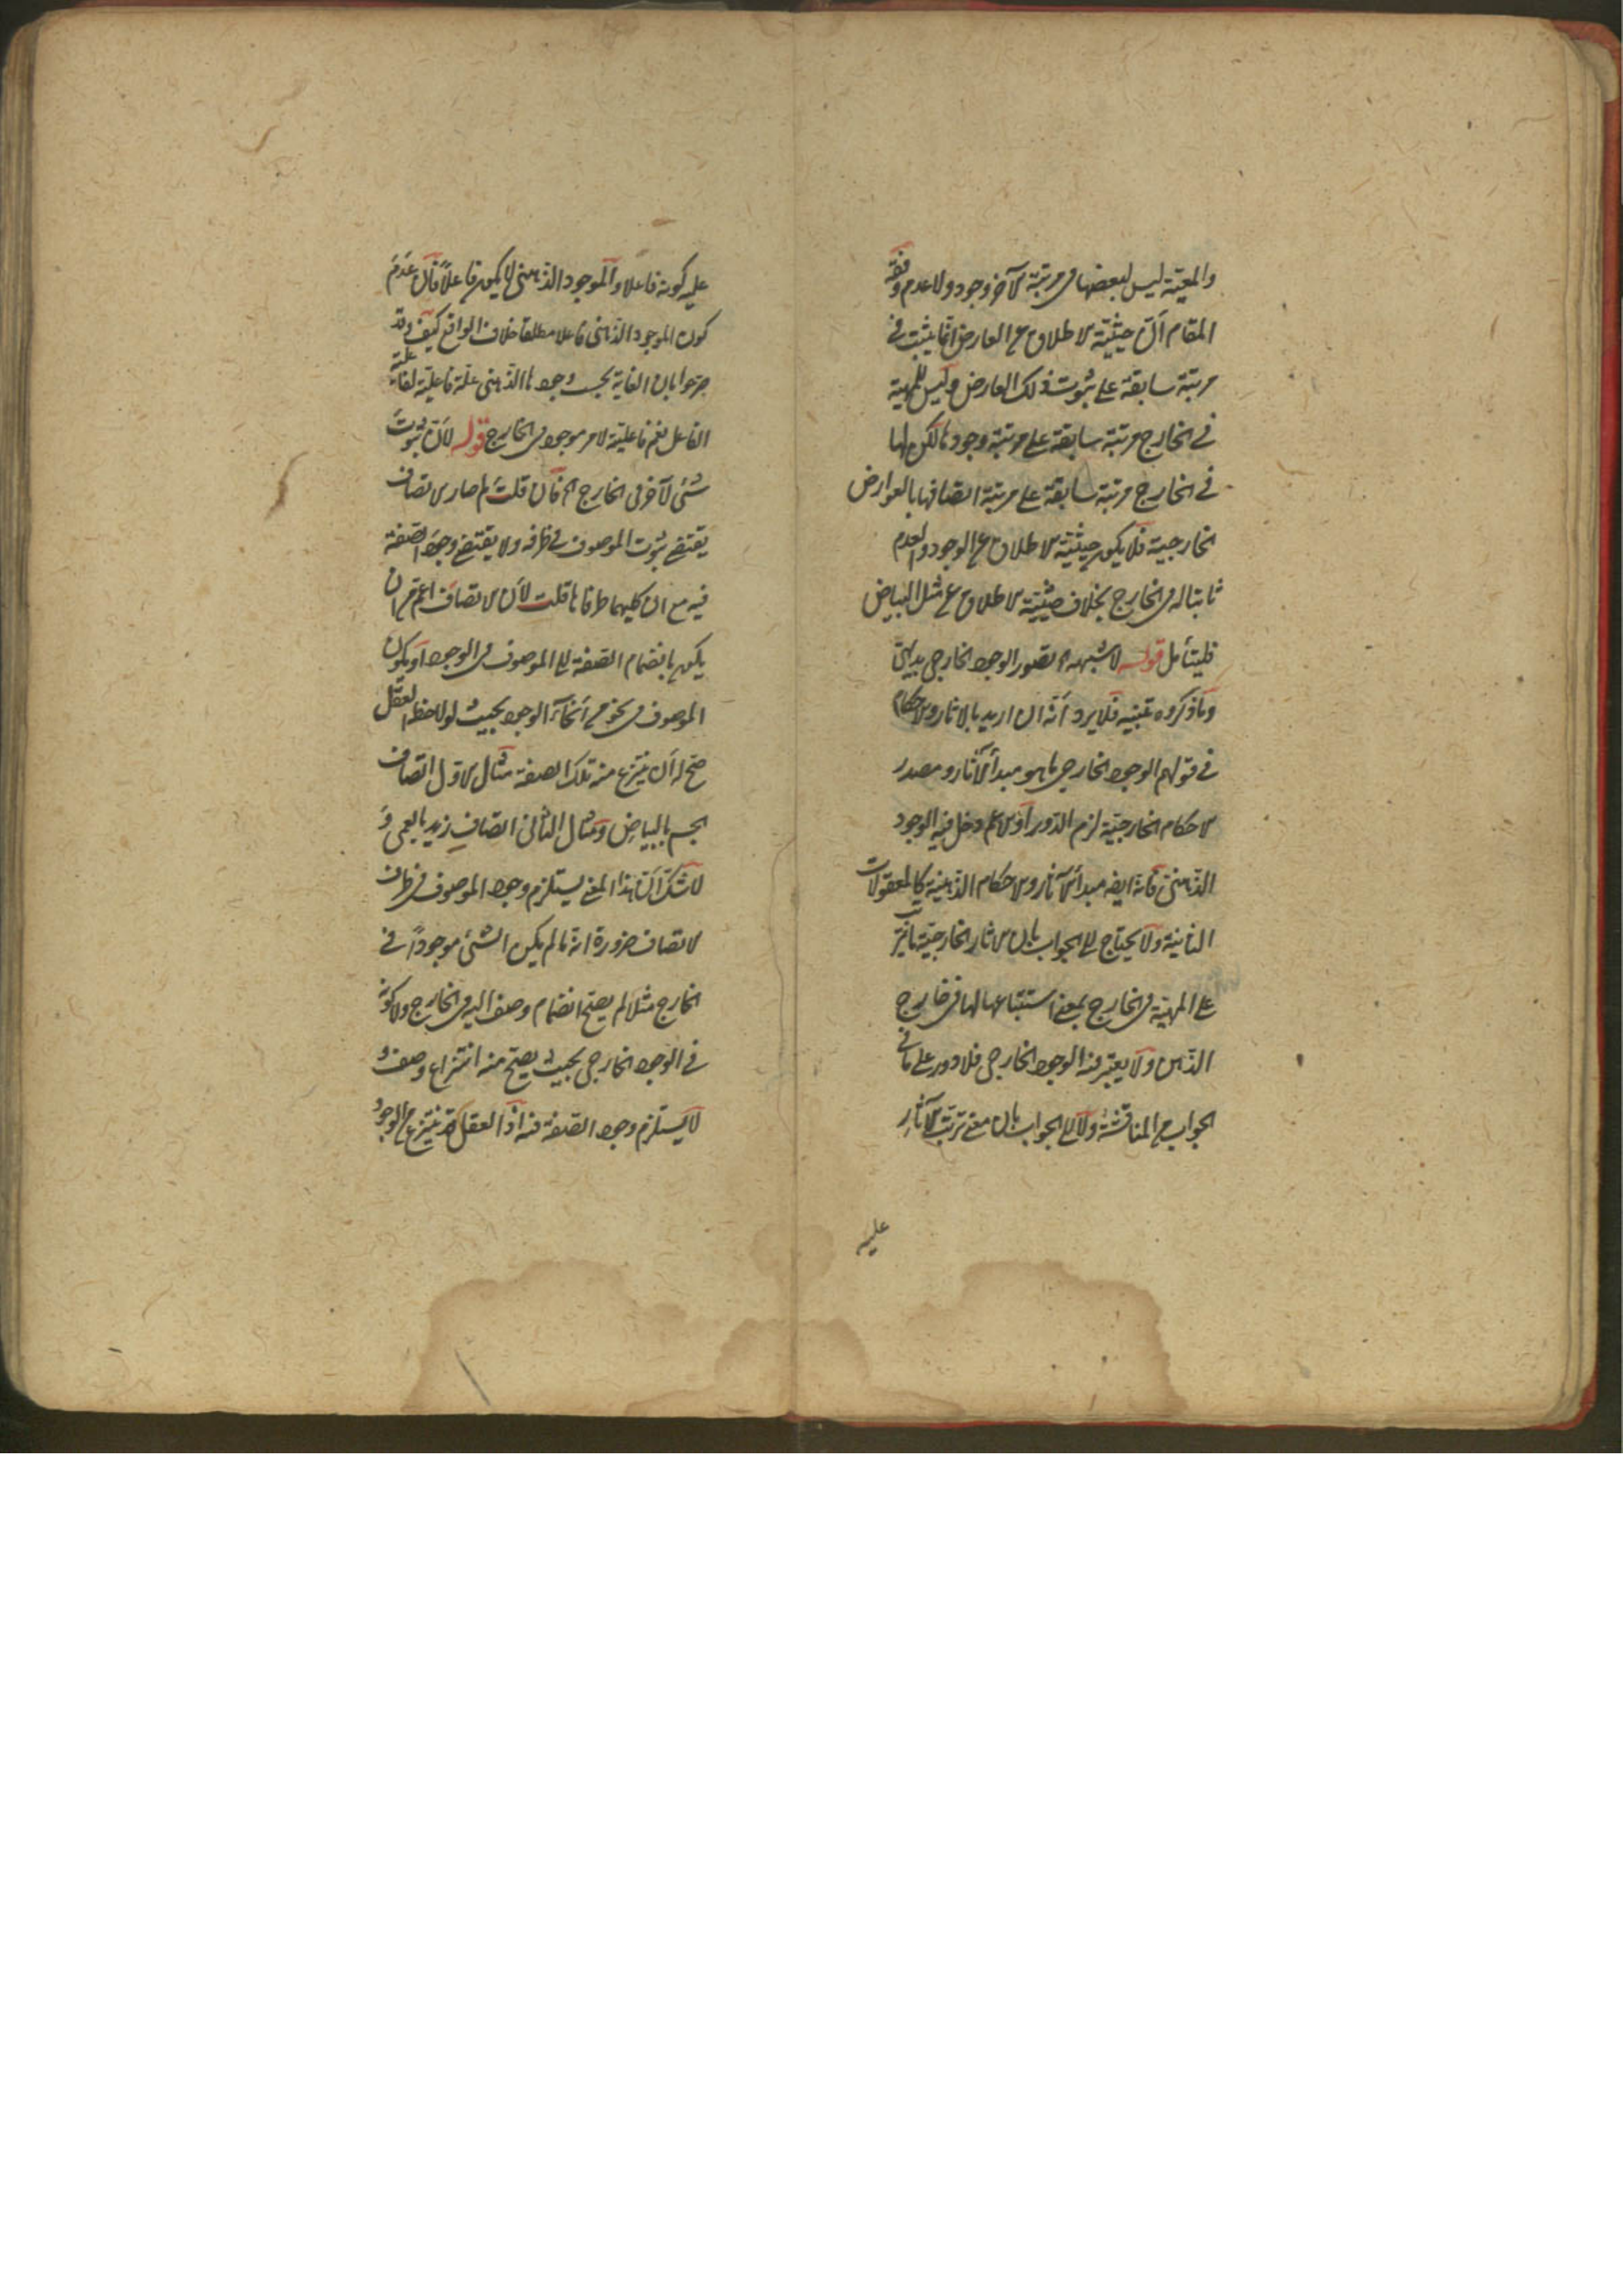 والمعية ليس لبعضها فى مرتبة الآخر وجود ولا عدم وفقه
المقام ان حيثية الاطلاق عن العارض انما يثبت فى
مرتبة سابقة على ثبوت ذلك العارض وليس للمهية
فى الخارج مرتبة سابقة على مرتبة وجودها لكن لها
فى الخارج مرتبة سابقة على مرتبة اتصافها بالعوارض
الخارجية فلا يكون حيثية الاطلاق عن الوجود والعدم
ثابتا له فى الخارج بخلاف حيثية الاطلاق عن مثل البياض
فليتأمل قوله لا شبهة تصور الوجود الخارجى بديهى
وما ذكروه تنبيه فلا يرد أنه ان اريد بالاثار والاحكام
فى قولهم الوجود الخارجى ما هو مبدأ الآثار ومصدر
الاحكام الخارجية لزم الدور او الاعم دخل فيه الوجود
الذهنى فانه ايضا مبدأ الآثار والاحكام الذهنية كالمعقولات
الثانية ولا يحتاج الى الجواب بان الاثار الخارجية ما يترتب
على المهية فى الخارج بمعنى استتباعها لها فى خارج
الذهن ولا يعتبر فيه الوجود الخارجى فلا دور على ما فى
الجواب من المناقشة ولا الى الجواب بان معنى ترتب الآثار
عليه
عليه كونه فاعلا والموجود الذهنى لا يكون فاعلا فان عدم
كون الموجود الذهنى فاعلا مطلقا خلاف الواقع كيف وقد
صرحوا بان الغاية بحسب وجودها الذهنى علة فاعلية لفاعلية
الفاعل نعم فاعليته لامر موجود فى الخارج قوله لان ثبوت
شئ لآخر فى الخارج الخ فان قلت لم صار الاتصاف
يقتضى ثبوت الموصوف فى ظرفه ولا يقتضى وجود الصفة
فيه مع ان كليهما طرفاها قلت لان الاتصاف اعم من ان
يكون بانضمام الصفة الى الموصوف فى الوجود او يكون
الموصوف فى نحو من أنحاء الوجود بحيث لو لاحظه العقل
صح له أن ينتزع منه تلك الصفة مثال الاول اتصاف
الجسم بالبياض ومثال الثانى اتصاف زيد بالعمى و
لا شك ان هذا المعنى يستلزم وجود الموصوف فى ظرف
الاتصاف ضرورة انه ما لم يكن الشئ موجودا فى
الخارج مثلا لم يصح انضمام وصف اليه فى الخارج ولا كونه
فى الوجود الخارجى بحيث يصح منه انتزاع وصف و
لا يستلزم وجود الصفة فيه اذ العقل قد ينتزع من الوجود